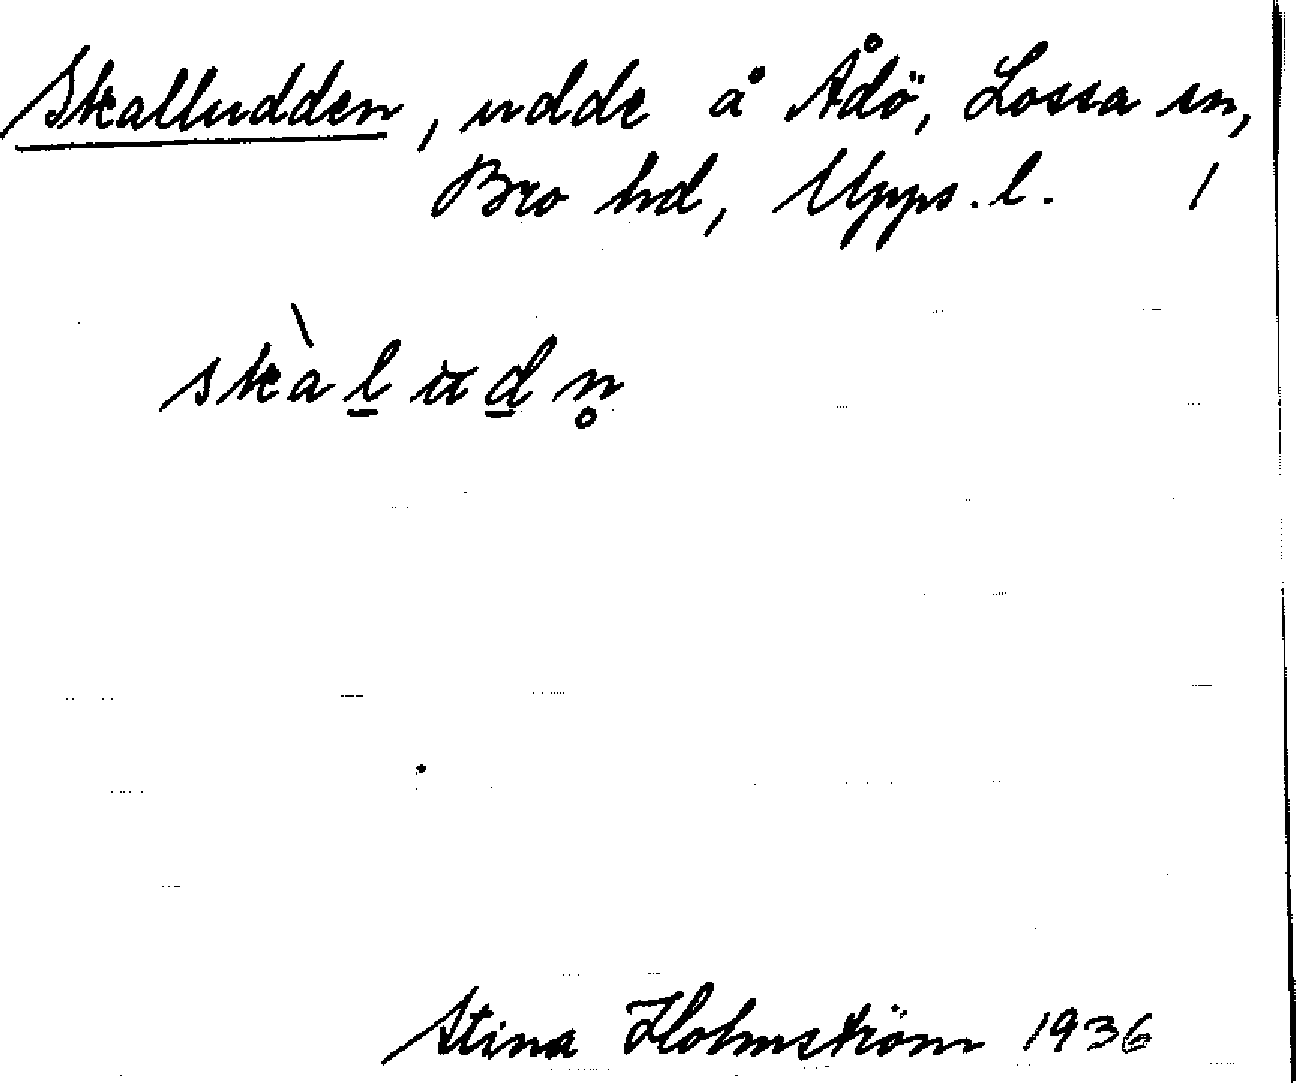 Skalludden, udde å Ådö, Lossa sn,
Bro hd, Upps. l. 1
skàl̲ud̲n̥
Stina Holmström 1936